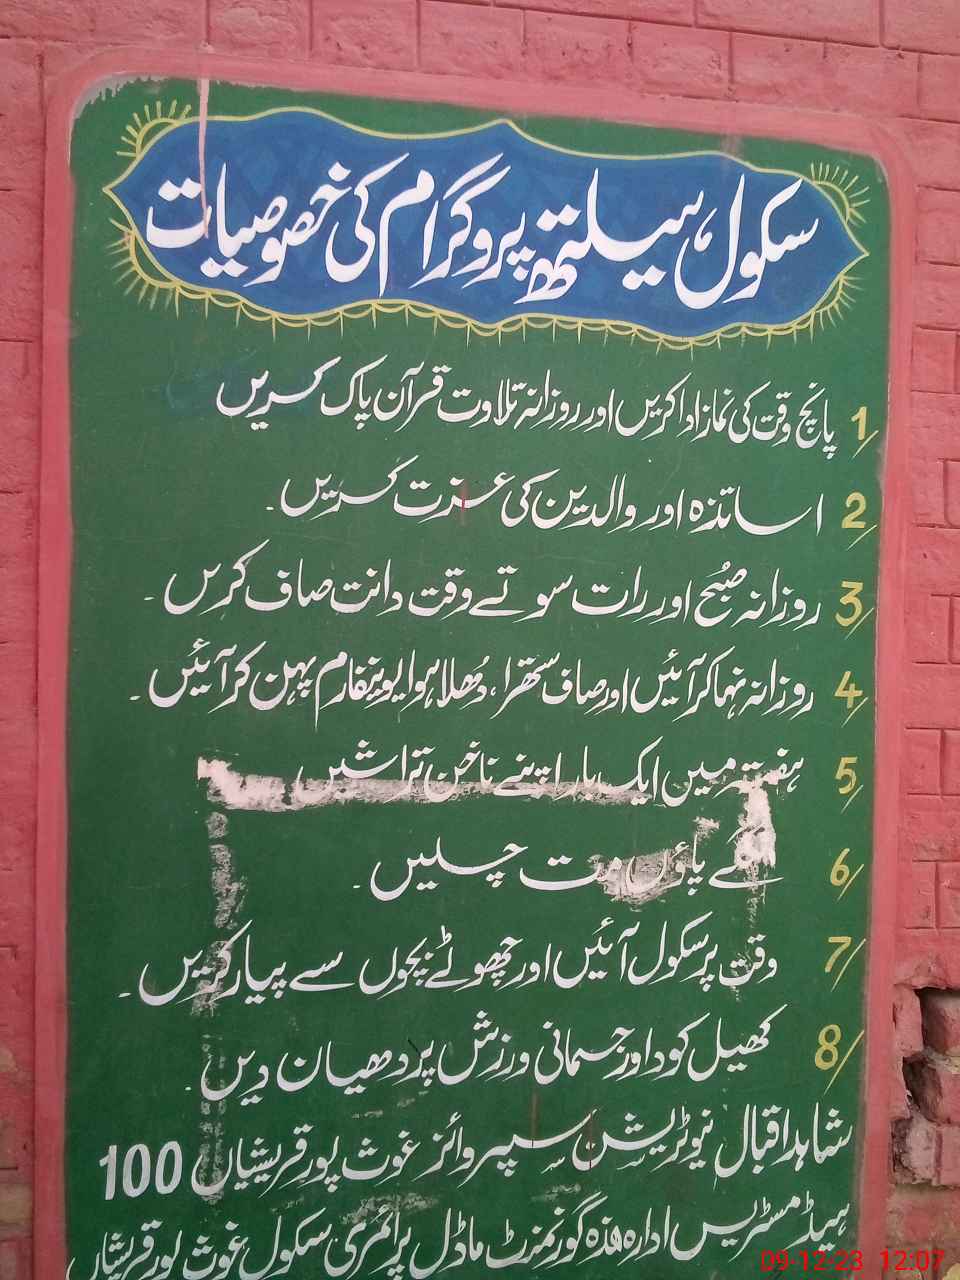 سکول ہیلتھ پروگرام کی خصوصیات
1/ پانچ وقت کی نماز ادا کریں اور روزانہ تلاوت قرآن پاک کریں
2/ اساتذہ اور والدین کی عزت کریں۔
3/ روزانہ صبح اور رات سوتے وقت دانت صاف کریں۔
4/ روزانہ نہا کر آئیں اور صاف ستھرا، دُھلا ہوا یونیفارم پہن کر آئیں۔
5/ ہفتہ میں ایک بار اپنے ناخن تراشیں
6/ ننگے پاؤں مت چلیں۔
7/ وقت پر سکول آئیں اور چھوٹے بچوں سے پیار کریں۔
8/ کھیل کود اور جسمانی ورزش پر دھیان دیں۔
شاہد اقبال نیوٹریشن سپروائزر غوث پور قریشیاں 100
ہیڈ مسٹریس ادارہ ھذہ گورنمنٹ ماڈل پرائمری سکول غوث پور قریشیاں
09-12-23 12:07